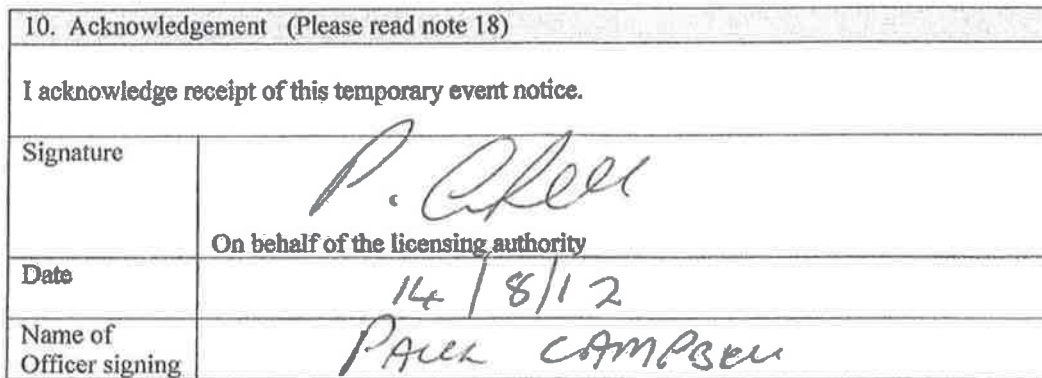 10. Acknowledgement (Please read note 18)
I acknowledge receipt of this temporary event notice.
Signature
P.
On behalf of the licensing authority
Date
14/8/12
Name of
Officer signing
PAUL CAMPBELL